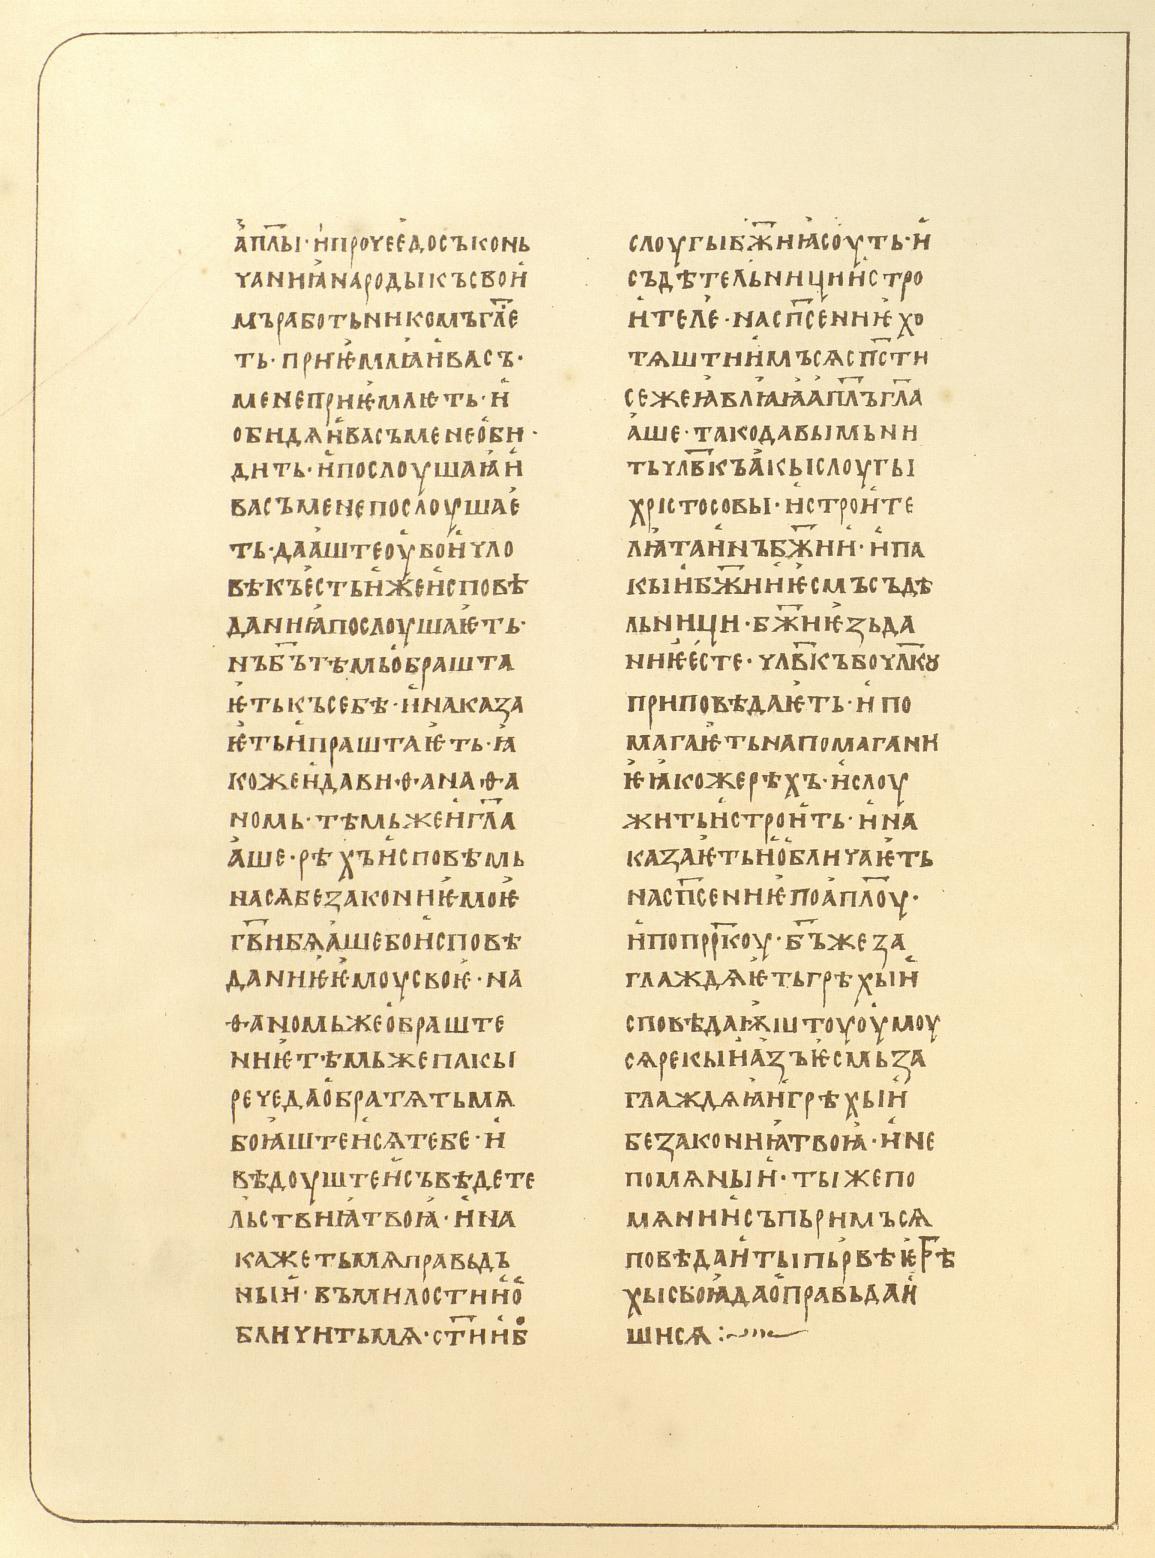 апл҃ы·ипрочеедосъконь
чаниꙗнародыкъсвои
мъработьникомъгл҃е
ть·приѥмлѧивасъ·
менеприѥмлѥть·и
обидѧивасъменеоби·
дить·ипослоушаꙗи
васъменепослоушае
ть·дааштеоубоичло
вѣкъестьижеисповѣ
даниꙗпослоушаѥть·
нъб҃ътѣмьобрашта
ѥтькъсебѣ·инаказа
ѥтьипраштаѥть·ꙗ
кожеидави·ѳ·ана·ѳа
номь·тѣмьжеигл҃а
аше·рѣхъисповѣмь
насѧбеꙁакониѥмоѥ
гв҃ибѧашебоисповѣ
даниѥѥмоусвоѥ·на
ѳаномьжеобраште
ниѥтѣмьжепакы
речедаобратѧтьмѧ
боꙗштеисѧтебе·и
вѣдоуштеисъвѣдете
льствиꙗтвоꙗ·ина
кажетьмѧправьдъ
ныи·въмилостиио
бличитьмѧ·ст҃иибⷪ
слоугыбж҃иꙗсоуть·и
съдѣтельницииистро
ителе·насп҃сениѥхо
тѧштиимъсѧсп҃сти
сежеꙗвлꙗꙗапл҃ъгл҃а
аше·такодавымьни
тьчлв҃къакыслоугы
хрістосовы·истроите
лꙗтаинъбж҃ии·ипа
кыибж҃ииѥсмъсъдѣ
льници·бж҃иѥꙁьда
ниѥесте·члв҃къбочлк҃ꙋ
приповѣдаѥть·ипо
магаѥтьнапомагани
ѥꙗкожерѣхъ·ислоу
житьистроить·ина
каꙁаѥтьиобличаѥть
насп҃сениѥпоапл҃оу·
ипопрр҃коу·б҃ъжеꙁа
глаждѧѥтьгрѣхыи
сповѣдаѭштоуоумоу
сѧрекыиаꙁъѥсмьꙁа
глаждѧꙗигрѣхыи
беꙁакониꙗтвоꙗ·ине
помѧныи·тыжепо
мѧниисъпьримъсѧ
повѣдаитыпьрвѣѥгрѣ
хысвоꙗдаоправьдаи
шисѧ:~